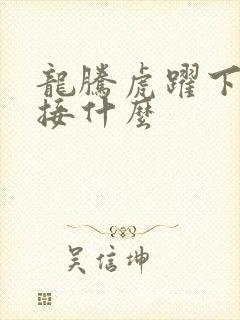 龍騰虎躍下
接什麼
吳信坤